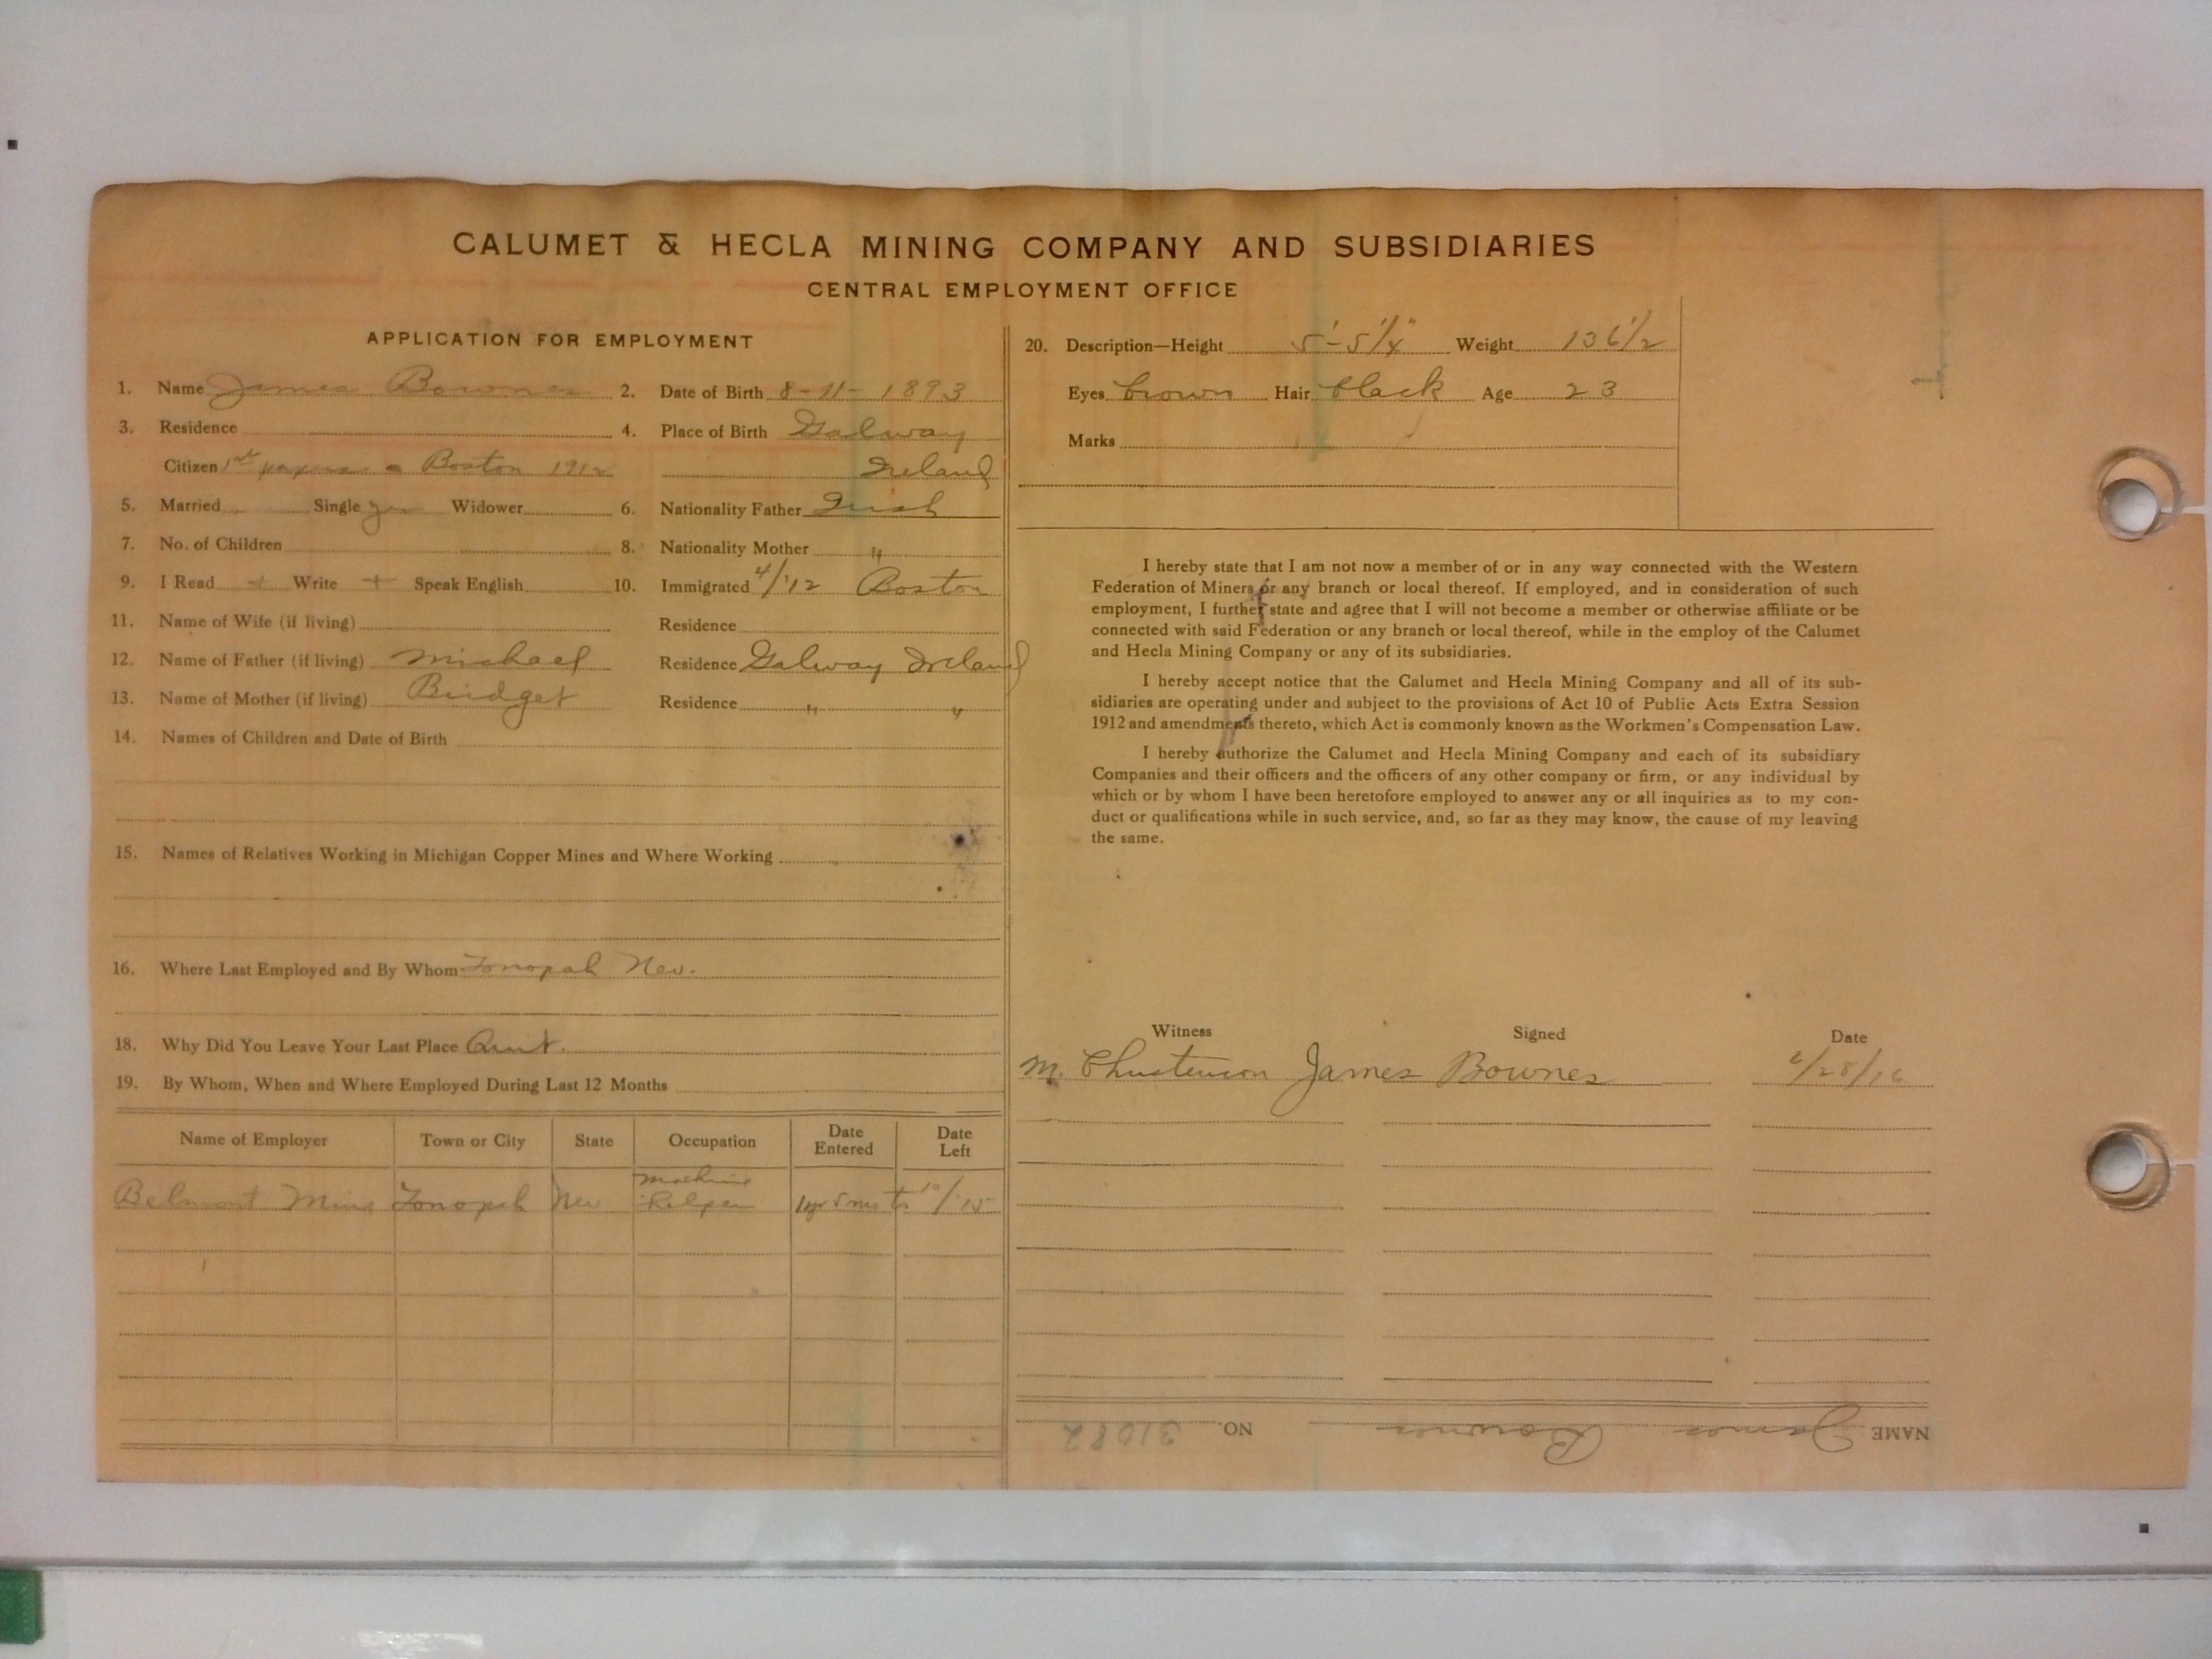 CALUMET & HECLA MINING COMPANY AND SUBSIDIARIES
CENTRAL EMPLOYMENT OFFICE
APPLICATION FOR EMPLOYMENT
1. Name James Bownes 2. Date of Birth 8-11-1893
3. Residence 4. Place of Birth Galway
Citizen 1st papers - Boston 1912 Ireland
5. Married Single yes Widower 6. Nationality Father Irish
7. No. of Children 8. Nationality Mother "
9. I Read + Write + Speak English 10. Immigrated 4/'12 Boston
11. Name of Wife (if living) Residence
12. Name of Father (if living) Michael Residence Galway Ireland
13. Name of Mother (if living) Bridget Residence " "
14. Names of Children and Date of Birth
15. Names of Relatives Working in Michigan Copper Mines and Where Working
16. Where Last Employed and By Whom Tonopah Nev.
18. Why Did You Leave Your Last Place Quit.
19. By Whom, When and Where Employed During Last 12 Months
Name of Employer Town or City State Occupation Date Entered Date Left
Belmont Mine Tonopah Nev Machine Helper 1 yr 5 mo to 10/'15
20. Description—Height 5'-5 1/4" Weight 136 1/2
Eyes brown Hair black Age 23
Marks
I hereby state that I am not now a member of or in any way connected with the Western
Federation of Miners or any branch or local thereof. If employed, and in consideration of such
employment, I further state and agree that I will not become a member or otherwise affiliate or be
connected with said Federation or any branch or local thereof, while in the employ of the Calumet
and Hecla Mining Company or any of its subsidiaries.
I hereby accept notice that the Calumet and Hecla Mining Company and all of its sub-
sidiaries are operating under and subject to the provisions of Act 10 of Public Acts Extra Session
1912 and amendments thereto, which Act is commonly known as the Workmen's Compensation Law.
I hereby authorize the Calumet and Hecla Mining Company and each of its subsidiary
Companies and their officers and the officers of any other company or firm, or any individual by
which or by whom I have been heretofore employed to answer any or all inquiries as to my con-
duct or qualifications while in such service, and, so far as they may know, the cause of my leaving
the same.
Witness Signed Date
M. Christenson James Bownes /28/16
NAME James Bownes NO. 31082